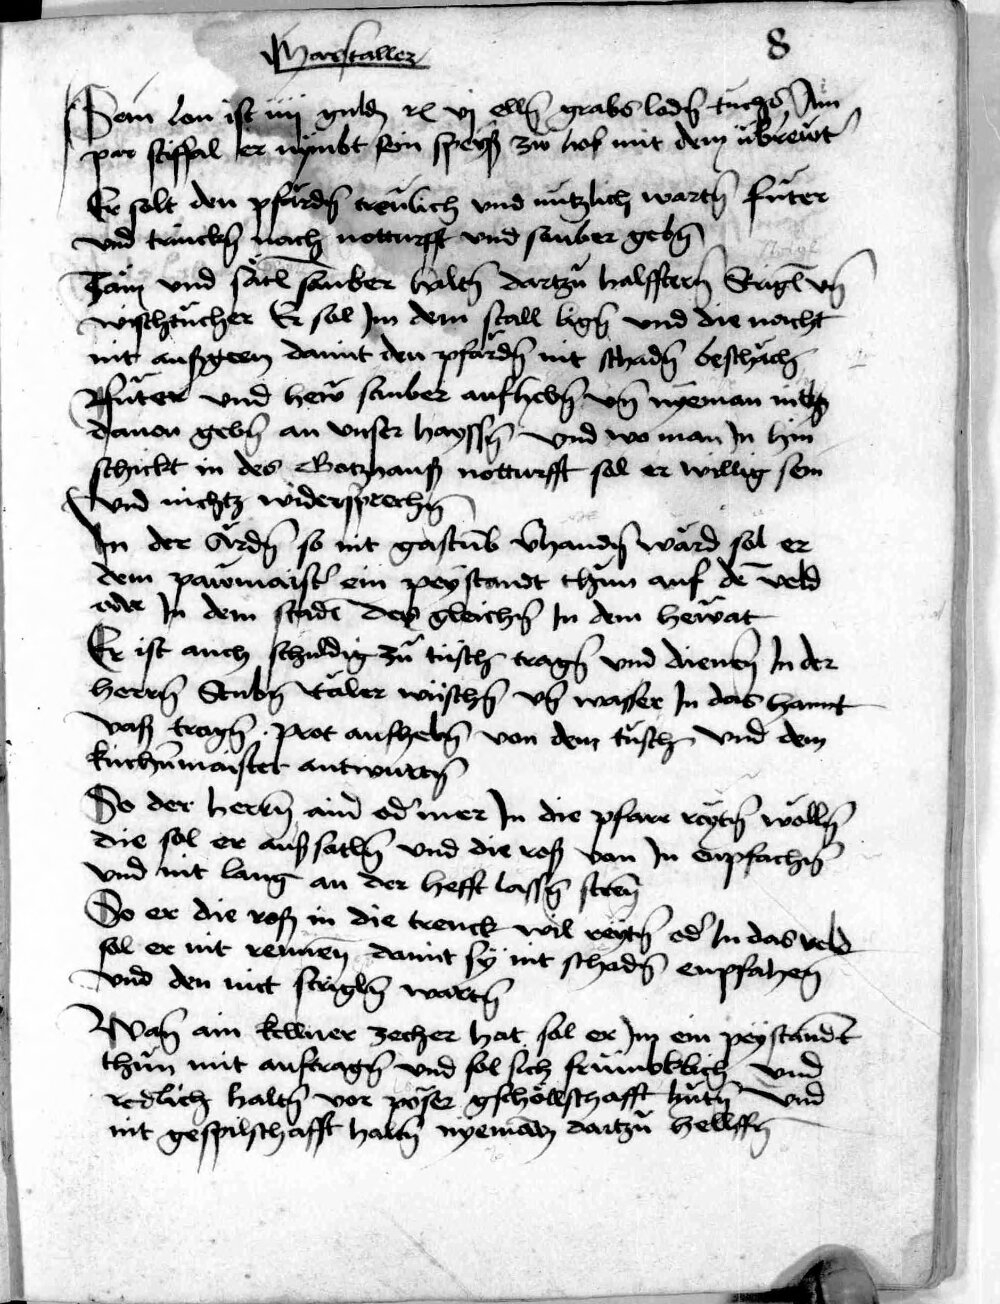 Marstaller
8
Sein lon ist iiij guld rl vj elln̄ grabs lodn̄ tuchs Ain
par stiffal er nÿmbt sein speyß zw hof mit dem übrewt
Er solt den pfärdn̄ trewlich vnd nützlich wartn̄ füter
vnd trinckn̄ nach notturfft vnd sauber gebn̄
Zäm vnd sätl sauber haltn̄ dartzü halfftern̄ Strigl vn̄
wischtücher Er sol Jm dem stall lign̄ vnd die nacht
nit außgeen damit den pfärdn̄ nit schadn̄ beschäch
füter vnd hew sauber aufhebn̄ vn̄ nyeman nitz
dauon gebn̄ an vnser hayssn̄ vnd wo man Jn hin
schickt in des Gotzhauß notturfft sol er willig sein
vnd nichtz widersprechn̄
In der Ärdn̄ so nit gastūb v̄handn̄ wärd sol er
dem pawmaist' ein peystandt thün auf de veld
oder In dem stadl des gleichn̄ In dem hewat
Er ist auch schuldig zü tüsch tragn̄ vnd dienen In der
herrn̄ Stubn̄ täler wüschn̄ vn̄ wasser In das hannt
vaß tragn̄ . prot aufhebn̄ von dem tüsch vnd dem
kuchn̄maister antwurtn̄
So der herrn̄ ainer od' mer In die pfarr reytn̄ wölln̄
die sol er auß satln̄ vnd die roß von Jn enpfachn̄
vnd nit lang an der hefft lassn̄ steen
So er die roß in die trenck wil reytn̄ od' In das veld
sol er nit rennen damit sy nit schadn̄ enpfahen
vnd den mit strigln̄ wartn̄
Wan̄ ain kellner zecher hat sol er Jm ein peystandt
thün mit auftragn̄ vnd sol sich frümbklich vnd
redlich haltn̄ vor pöser gschöllschafft hütn̄ vnd
nit gespilschafft haltn̄ nyemātz dartzü hellffn̄